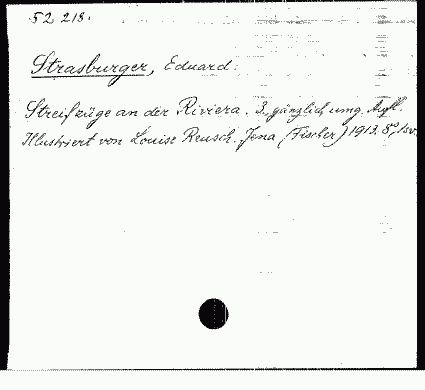 52 218.
Strasburger, Eduard:
Streifzüge an der Riviera. 3. gänzlich umg. Aufl.
Illustriert von Louise Reusch. Jena (Fischer) 1913. 8°,